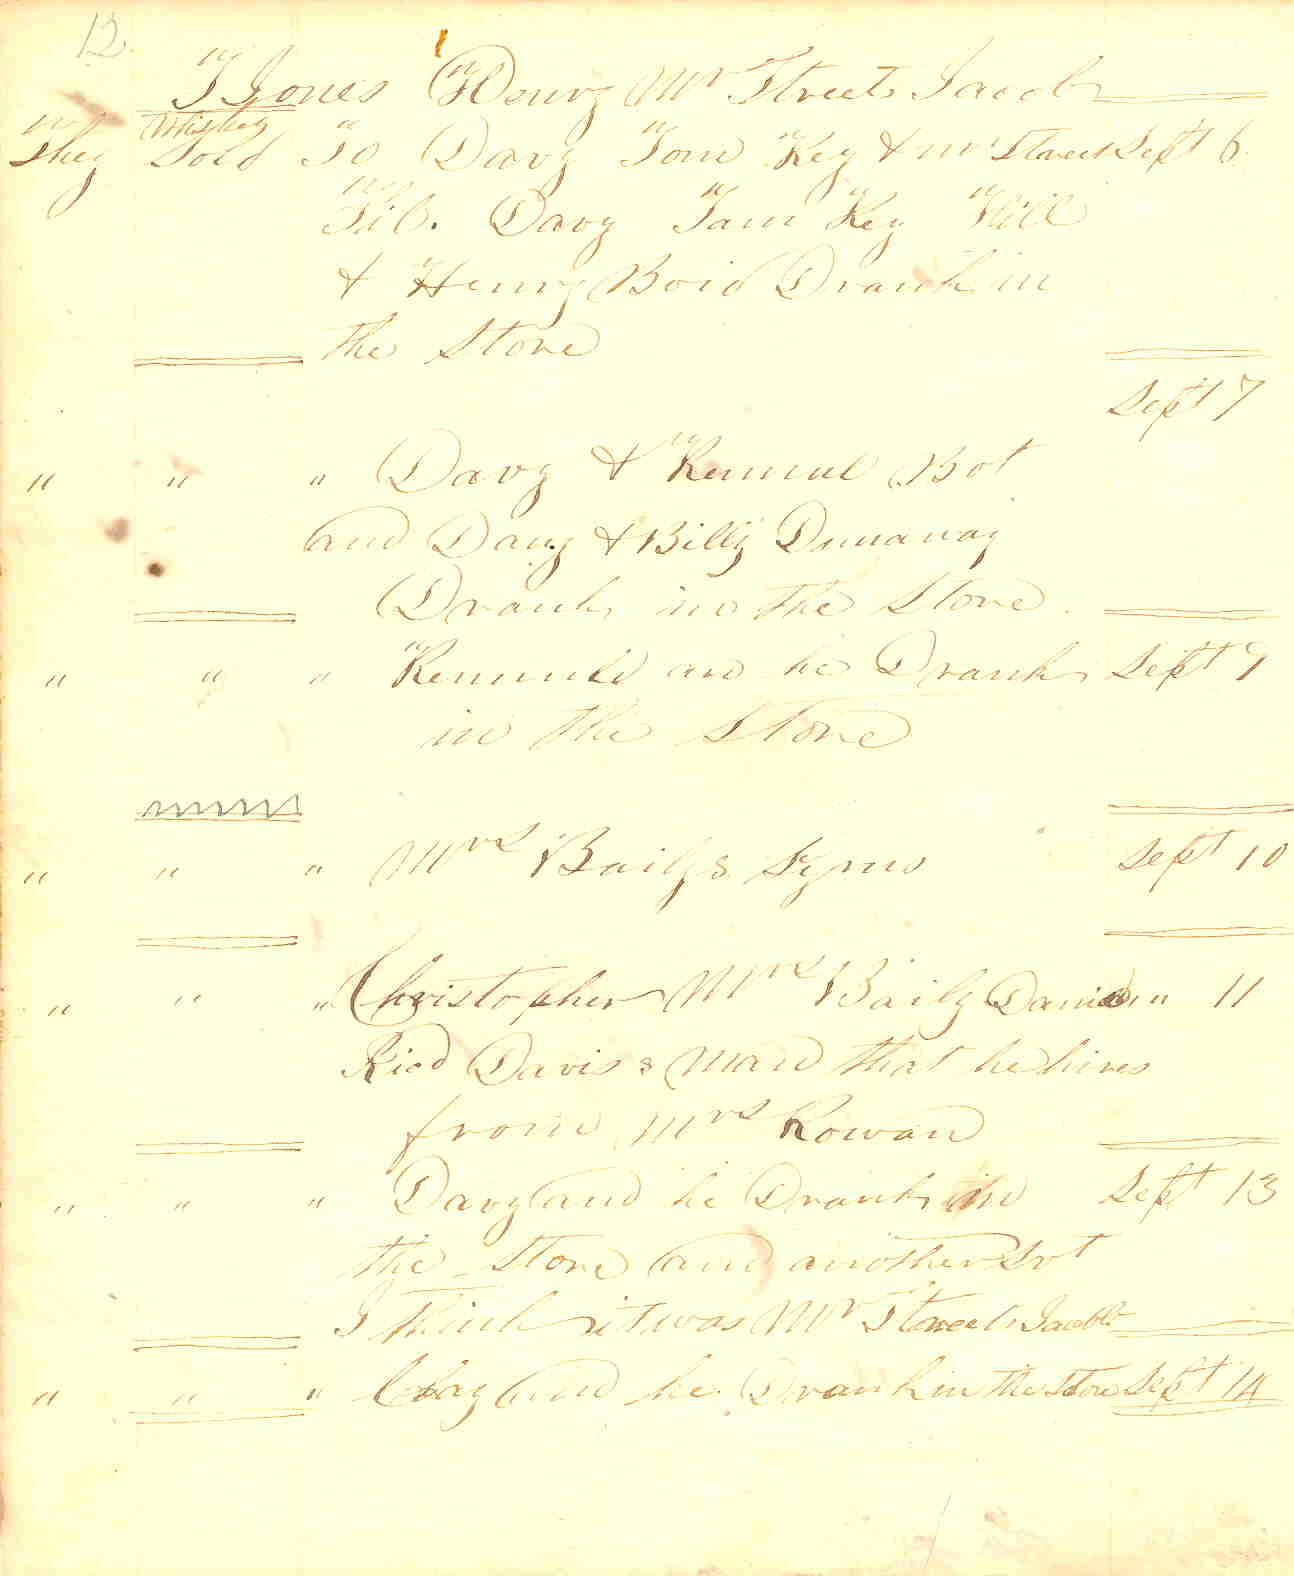 12
T Jones Henry Mr Streets Jacob
Whiskey
They Sold To Davy Tom Key & Mr Street Sept 6
Tib. Davy Tam Key Will
& Henry Boid Drank in
the Store
Sept 7
" " " Davy & Kemul Bot
and Davy & Billy Dunaway
Drank in the Store
" " " Kemuld and he Drank Sept 9
in the Store
" " " Mrs Bailys Syms Sept 10
" " " Christopher Mrs Baily Daniel " 11
Ricd Davis s Man that he hires
from Mrs Rowan
" " " Davy and he Drank in Sept 13
the Store and another Sot
I think it was Mr Streets Jacob
" " " Clay and he Drank in the Store Sept 14